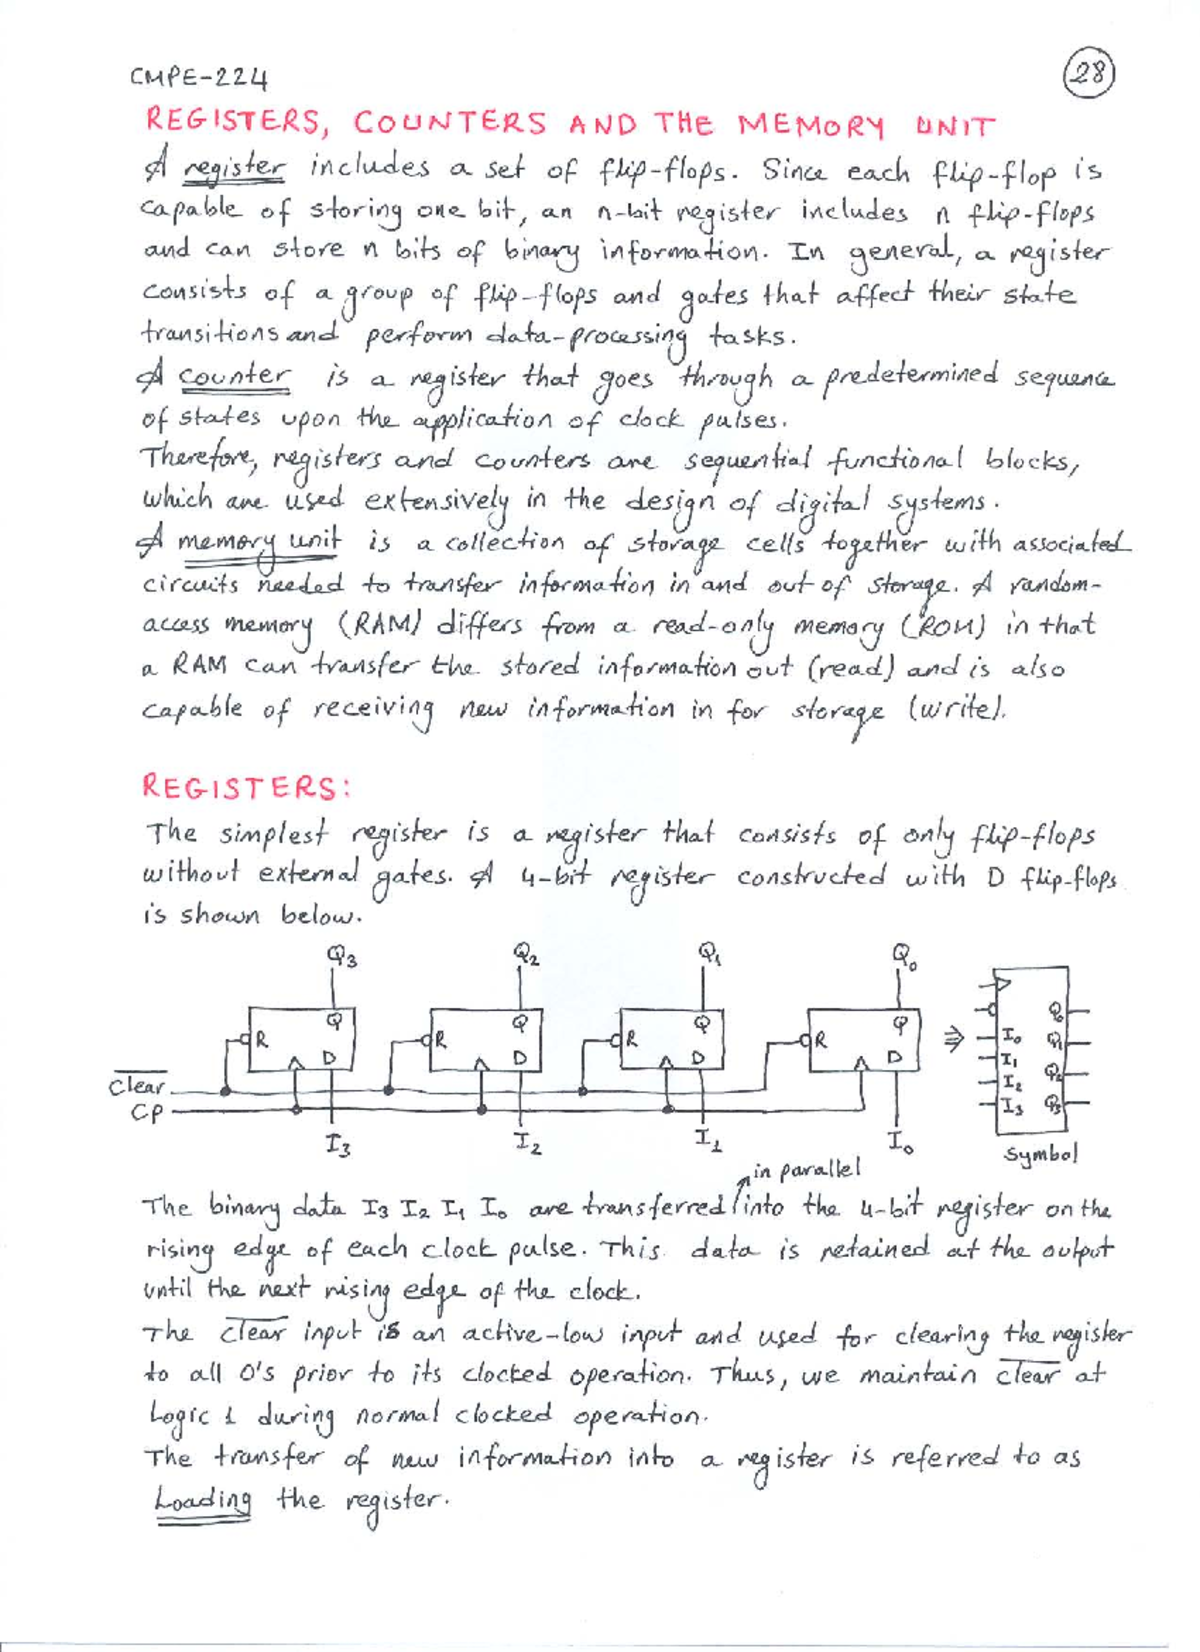 CMPE-224
28
REGISTERS, COUNTERS AND THE MEMORY UNIT
A register includes a set of flip-flops. Since each flip-flop is
capable of storing one bit, an n-bit register includes n flip-flops
and can store n bits of binary information. In general, a register
consists of a group of flip-flops and gates that affect their state
transitions and perform data-processing tasks.
A counter is a register that goes through a predetermined sequence
of states upon the application of clock pulses.
Therefore, registers and counters are sequential functional blocks,
which are used extensively in the design of digital systems.
A memory unit is a collection of storage cells together with associated
circuits needed to transfer information in and out of storage. A random-
access memory (RAM) differs from a read-only memory (ROM) in that
a RAM can transfer the stored information out (read) and is also
capable of receiving new information in for storage (write).
REGISTERS:
The simplest register is a register that consists of only flip-flops
without external gates. A 4-bit register constructed with D flip-flops
is shown below.
Q3 Q2 Q1 Q0
Q Q Q Q
R R R R
D D D D
Clear
CP
I3 I2 I1 I0
⇒
I0 Q0
I1 Q1
I2 Q2
I3 Q3
Symbol
in parallel
The binary data I3 I2 I1 I0 are transferred into the 4-bit register on the
rising edge of each clock pulse. This data is retained at the output
until the next rising edge of the clock.
The Clear input is an active-low input and used for clearing the register
to all 0's prior to its clocked operation. Thus, we maintain Clear at
Logic 1 during normal clocked operation.
The transfer of new information into a register is referred to as
Loading the register.